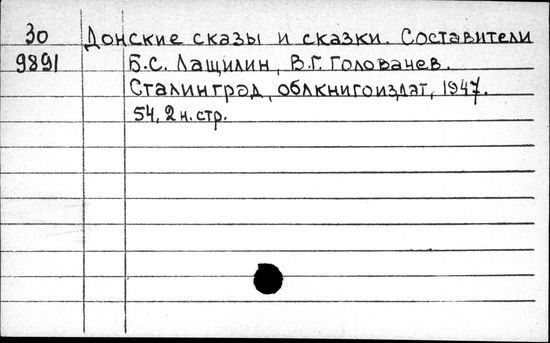 30 Донские сказы и сказки. Составители
9891 Б.С. Лащилин, В.Г. Головачев.
Сталинград, облкнигоиздат, 1947.
54, 2 н. стр.